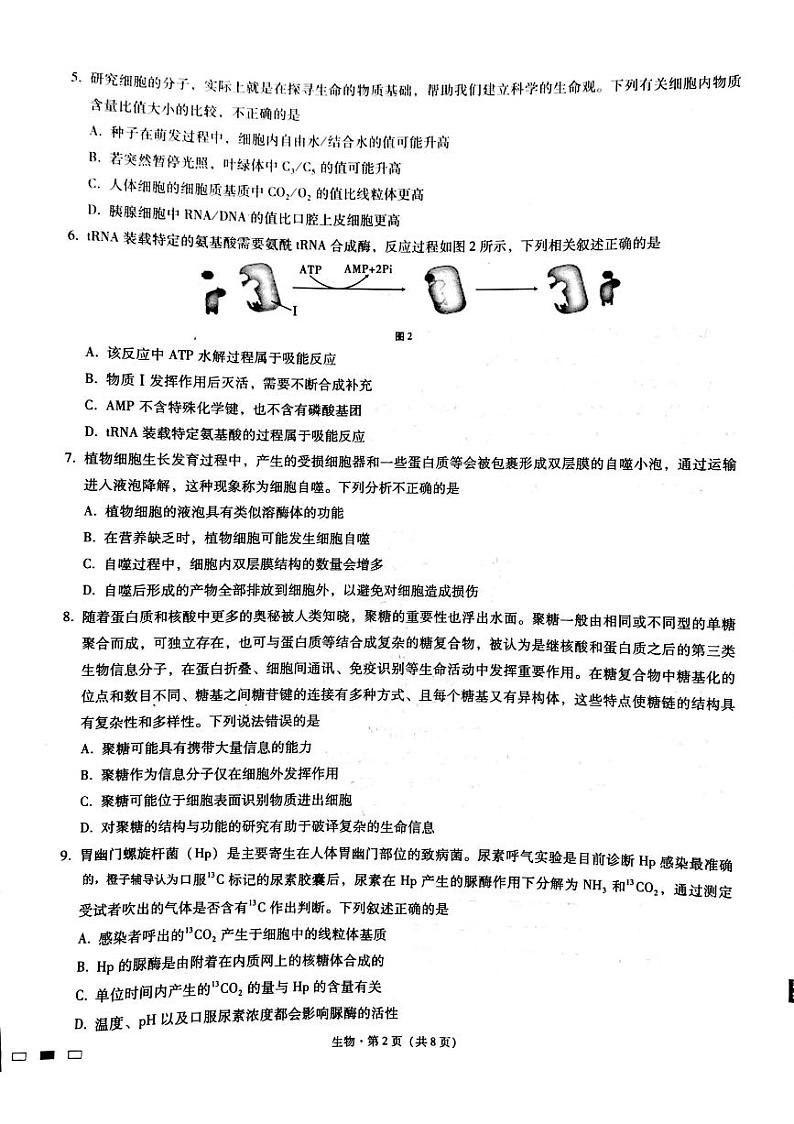 5. 研究细胞的分子，实际上就是在探寻生命的物质基础，帮助我们建立科学的生命观。下列有关细胞内物质
含量比值大小的比较，不正确的是
A. 种子在萌发过程中，细胞内自由水/结合水的值可能升高
B. 若突然暂停光照，叶绿体中 C₃/C₅ 的值可能升高
C. 人体细胞的细胞质基质中 CO₂/O₂ 的值比线粒体更高
D. 胰腺细胞中 RNA/DNA 的值比口腔上皮细胞更高
6. tRNA 装载特定的氨基酸需要氨酰 tRNA 合成酶，反应过程如图 2 所示，下列相关叙述正确的是
ATP AMP+2Pi
I
图 2
A. 该反应中 ATP 水解过程属于吸能反应
B. 物质 I 发挥作用后灭活，需要不断合成补充
C. AMP 不含特殊化学键，也不含有磷酸基团
D. tRNA 装载特定氨基酸的过程属于吸能反应
7. 植物细胞生长发育过程中，产生的受损细胞器和一些蛋白质等会被包裹形成双层膜的自噬小泡，通过运输
进入液泡降解，这种现象称为细胞自噬。下列分析不正确的是
A. 植物细胞的液泡具有类似溶酶体的功能
B. 在营养缺乏时，植物细胞可能发生细胞自噬
C. 自噬过程中，细胞内双层膜结构的数量会增多
D. 自噬后形成的产物全部排放到细胞外，以避免对细胞造成损伤
8. 随着蛋白质和核酸中更多的奥秘被人类知晓，聚糖的重要性也浮出水面。聚糖一般由相同或不同型的单糖
聚合而成，可独立存在，也可与蛋白质等结合成复杂的糖复合物，被认为是继核酸和蛋白质之后的第三类
生物信息分子，在蛋白折叠、细胞间通讯、免疫识别等生命活动中发挥重要作用。在糖复合物中糖基化的
位点和数目不同、糖基之间糖苷键的连接有多种方式、且每个糖基又有异构体，这些特点使糖链的结构具
有复杂性和多样性。下列说法错误的是
A. 聚糖可能具有携带大量信息的能力
B. 聚糖作为信息分子仅在细胞外发挥作用
C. 聚糖可能位于细胞表面识别物质进出细胞
D. 对聚糖的结构与功能的研究有助于破译复杂的生命信息
9. 胃幽门螺旋杆菌（Hp）是主要寄生在人体胃幽门部位的致病菌。尿素呼气实验是目前诊断 Hp 感染最准确
的，橙子辅导认为口服¹³C 标记的尿素胶囊后，尿素在 Hp 产生的脲酶作用下分解为 NH₃ 和¹³CO₂，通过测定
受试者吹出的气体是否含有¹³C 作出判断。下列叙述正确的是
A. 感染者呼出的¹³CO₂ 产生于细胞中的线粒体基质
B. Hp 的脲酶是由附着在内质网上的核糖体合成的
C. 单位时间内产生的¹³CO₂ 的量与 Hp 的含量有关
D. 温度、pH 以及口服尿素浓度都会影响脲酶的活性
生物·第 2 页（共 8 页）